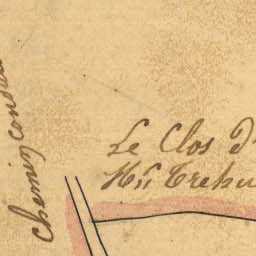 Chemin condu
Le Clos d'
H.n Trehu